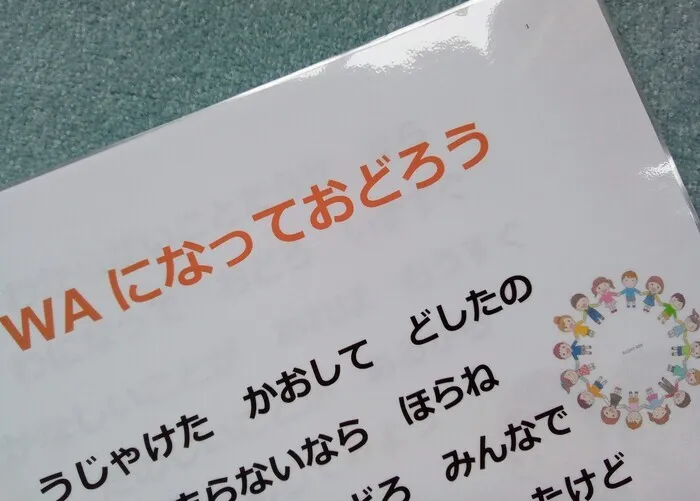 WAになっておどろう
うじゃけた かおして どしたの
まらないなら ほらね
どろ みんなで
たけど